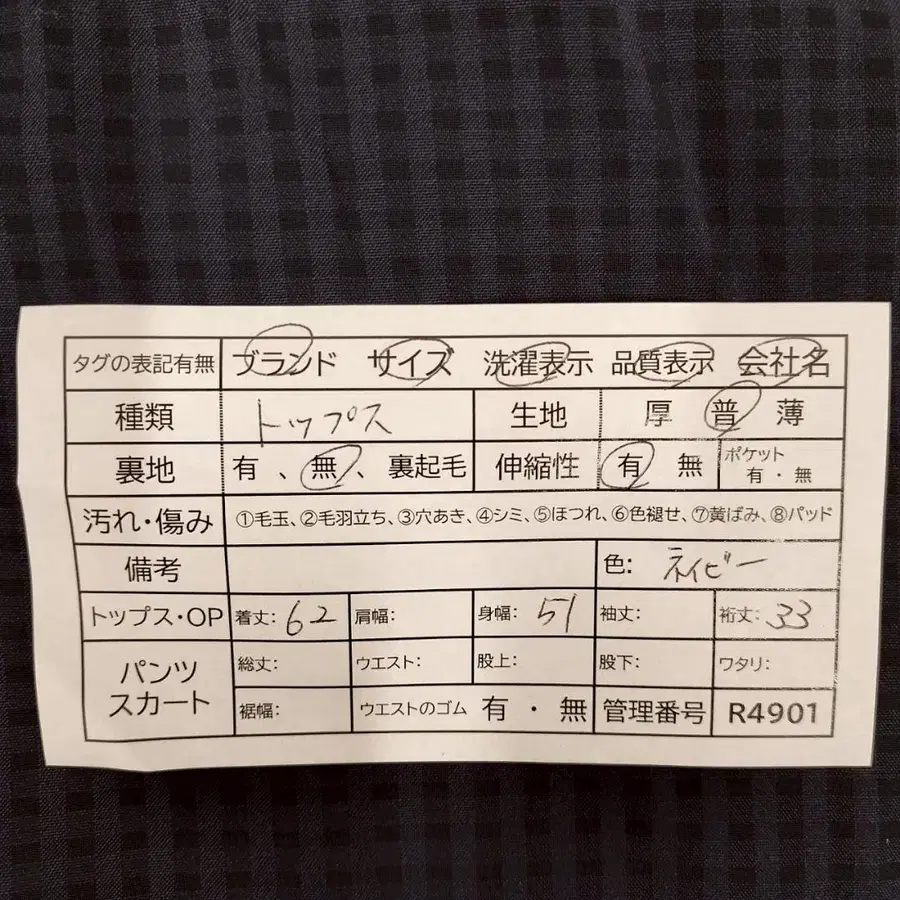 タグの表記有無 ブランド サイズ 洗濯表示 品質表示 会社名
種類 トップス 生地 厚 普 薄
裏地 有 、 無 、 裏起毛 伸縮性 有 無 ポケット 有 ・ 無
汚れ・傷み ①毛玉、②毛羽立ち、③穴あき、④シミ、⑤ほつれ、⑥色褪せ、⑦黄ばみ、⑧パッド
備考 色: ネイビー
トップス・OP 着丈: 62 肩幅: 身幅: 51 袖丈: 裄丈: 33
パンツ スカート 総丈: ウエスト: 股上: 股下: ワタリ:
裾幅: ウエストのゴム 有 ・ 無 管理番号 R4901